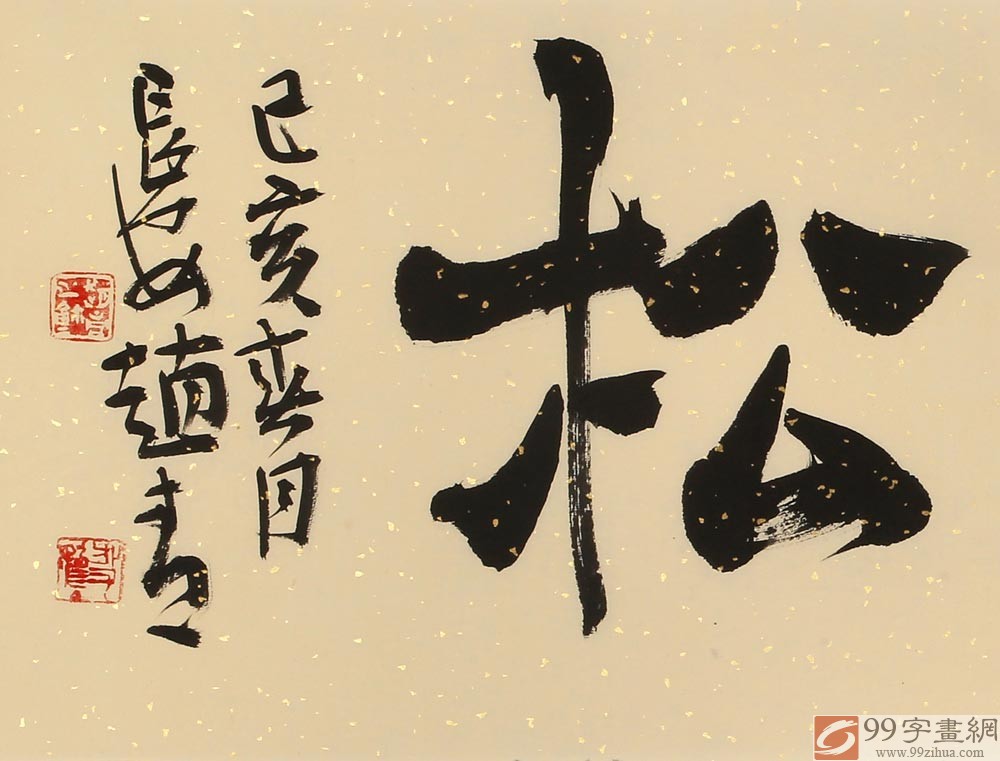 松
己亥春月
長安趙青
99字畫網
www.99zihua.com